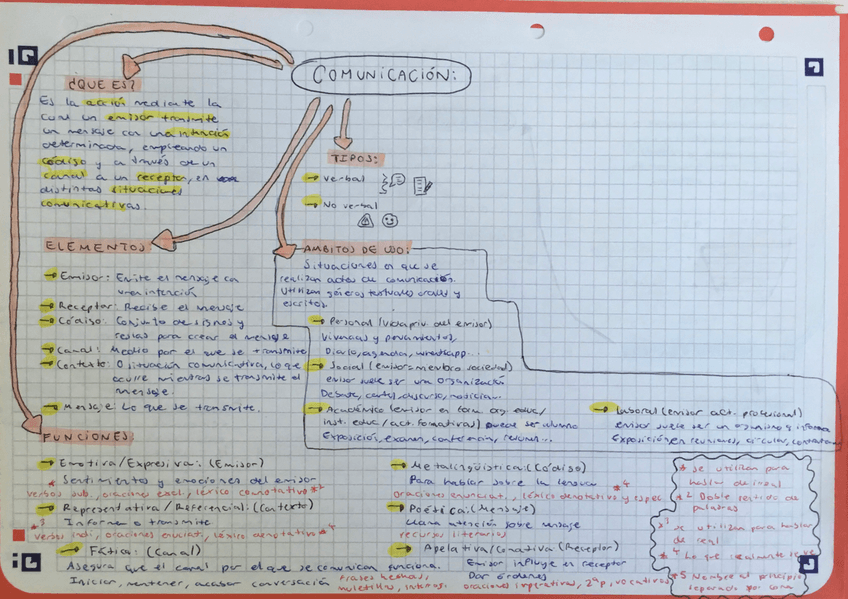 COMUNICACIÓN:
¿QUE ES?
Es la acción mediante la
cual un emisor transmite
un mensaje con una intención
determinada, empleando un
código y a través de un
canal a un receptor, en
distintas situaciones
comunicativas.
TIPOS:
Verbal
No verbal
ELEMENTOS
Emisor: Emite el mensaje con
una intención
Receptor: Recibe el mensaje
Código: Conjunto de signos y
reglas para crear el mensaje
Canal: Medio por el que se transmite
Contexto: O situación comunicativa, lo que
ocurre mientras se transmite el
mensaje.
Mensaje: Lo que se transmite.
AMBITOS DE USO:
Situaciones en que se
realizan actos de comunicación.
Utilizan géneros textuales orales y
escritos.
Personal (vida priv. del emisor)
Vivencias y pensamientos.
Diario, agenda, whatsapp...
Social (emisor=miembro sociedad)
emisor suele ser una organización
Debate, cartel, discurso, noticia...
Académico (emisor en form. org. educ/
inst. educ/act. formativas) puede ser alumno
Exposición, examen, conferencia, resumen...
Laboral (emisor act. profesional)
emisor suele ser un organismo e informa
Exposición en reuniones, circular, contrato
FUNCIONES
Emotiva/Expresiva: (Emisor)
* Sentimientos y emociones del emisor
verbos sub, oraciones excl, léxico connotativo *2
Representativa/Referencial: (Contexto)
*3 Informa o transmite
verbos indi, oraciones enunciati, léxico denotativo *4
Fática: (Canal)
Asegura que el canal por el que se comunican funciona.
Iniciar, mantener, acabar conversación
frases hechas,
muletillas, interro.
Metalingüística: (Código)
Para hablar sobre la lengua
oraciones enunciati, léxico denotativo y espec *4
Poética: (Mensaje)
Llama atención sobre mensaje
recursos literarios
Apelativa/Conativa (Receptor)
Emisor influye en receptor
Dar órdenes
oraciones imperativas, 2ªp, vocativos
* Se utilizan para
hablar de irreal
*2 Doble sentido de
palabras
*3 Se utilizan para hablar
de real
*4 Lo que realmente
*5 Nombre al principio
separado por coma